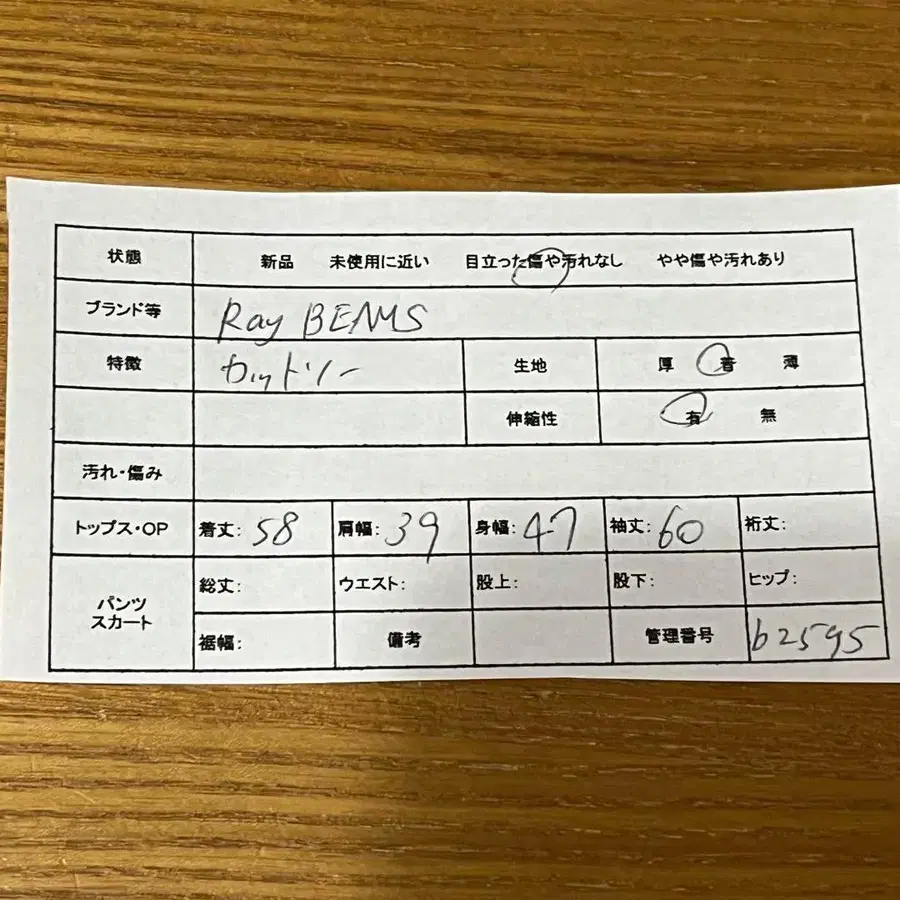 状態 新品 未使用に近い 目立った傷や汚れなし やや傷や汚れあり
ブランド等 Ray BEAMS
特徴 カットソー 生地 厚 普 薄
伸縮性 有 無
汚れ・傷み
トップス・OP 着丈: 58 肩幅: 39 身幅: 47 袖丈: 60 裄丈:
パンツ スカート 総丈: ウエスト: 股上: 股下: ヒップ:
裾幅: 備考 管理番号 b2595